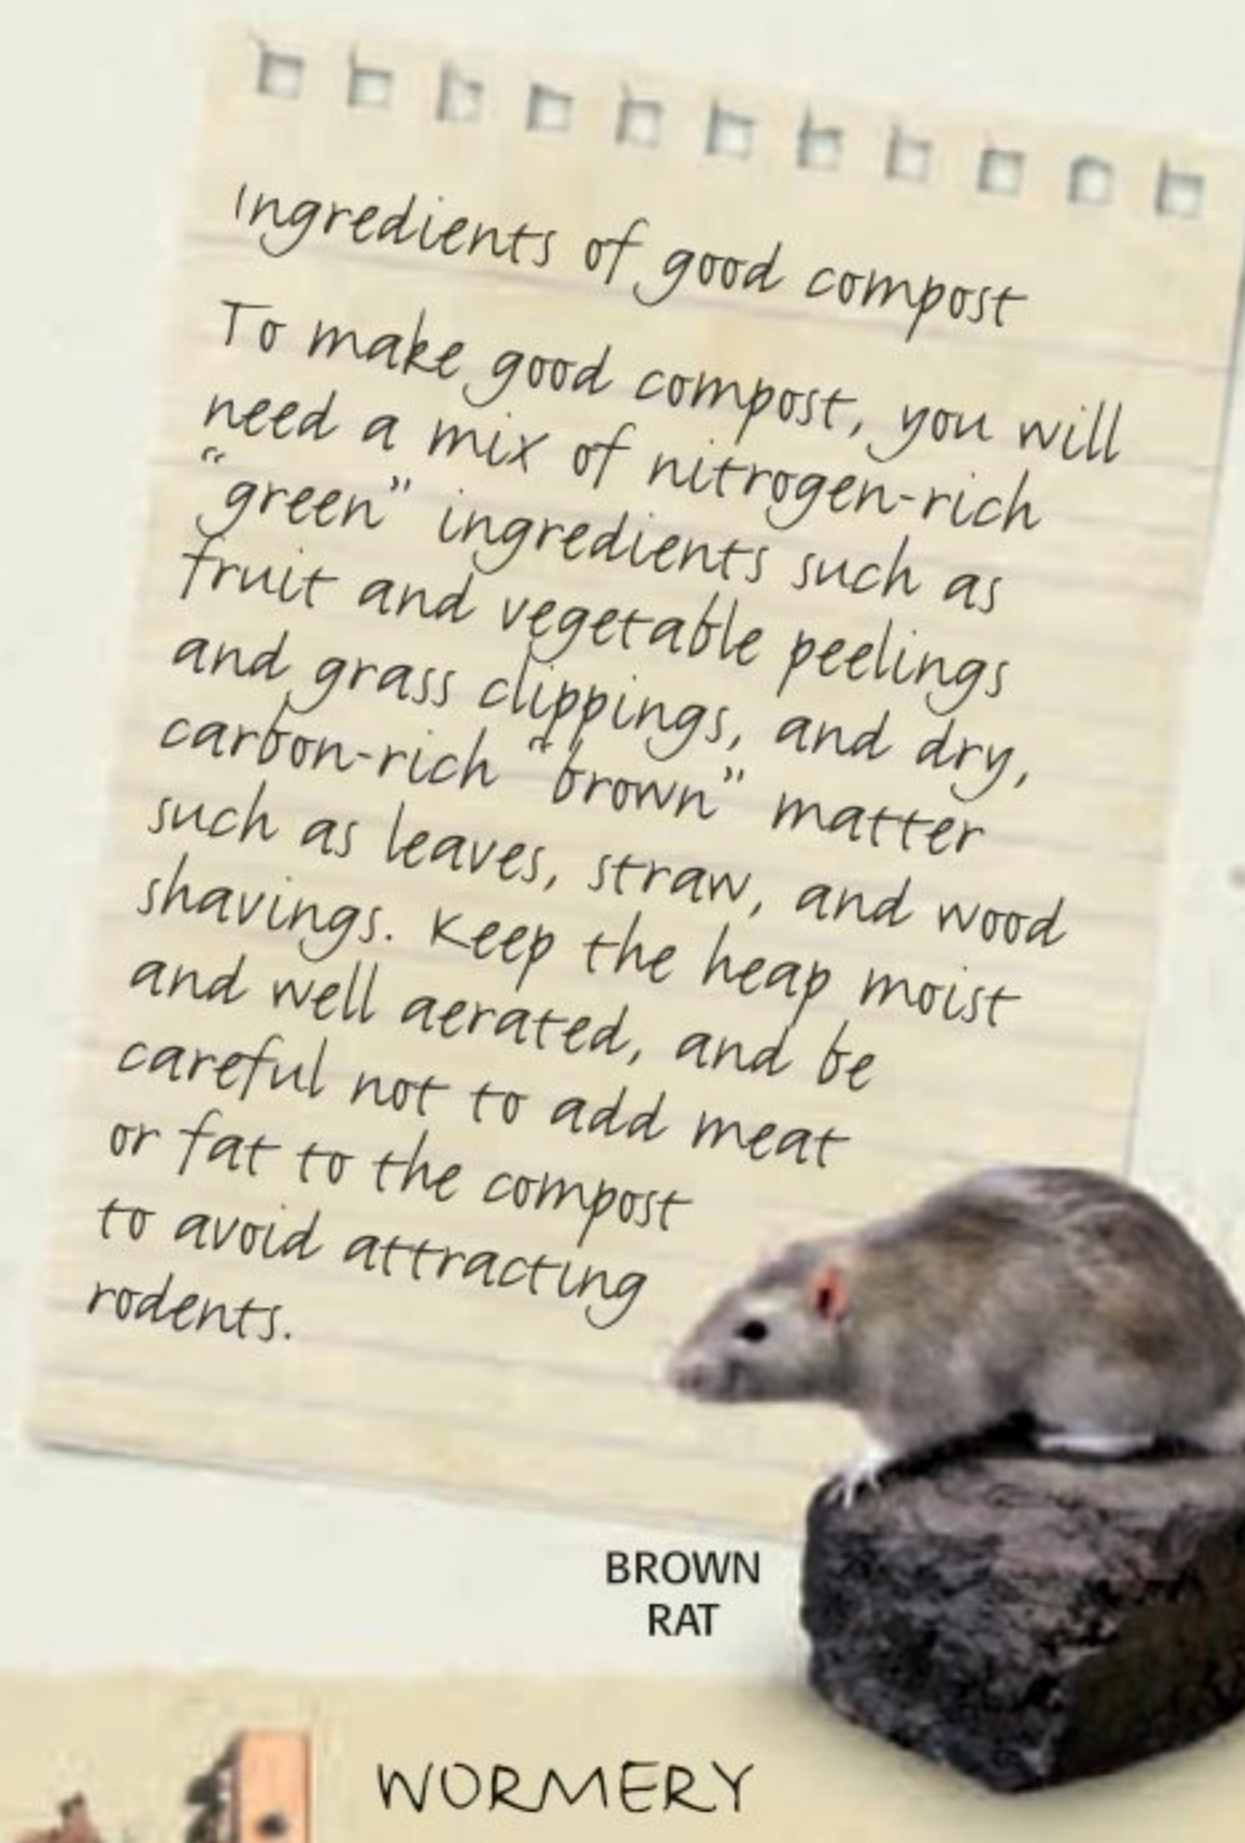 Ingredients of good compost
To make good compost, you will
need a mix of nitrogen-rich
“green” ingredients such as
fruit and vegetable peelings
and grass clippings, and dry,
carbon-rich “brown” matter
such as leaves, straw, and wood
shavings. Keep the heap moist
and well aerated, and be
careful not to add meat
or fat to the compost
to avoid attracting
rodents.
BROWN
RAT
WORMERY